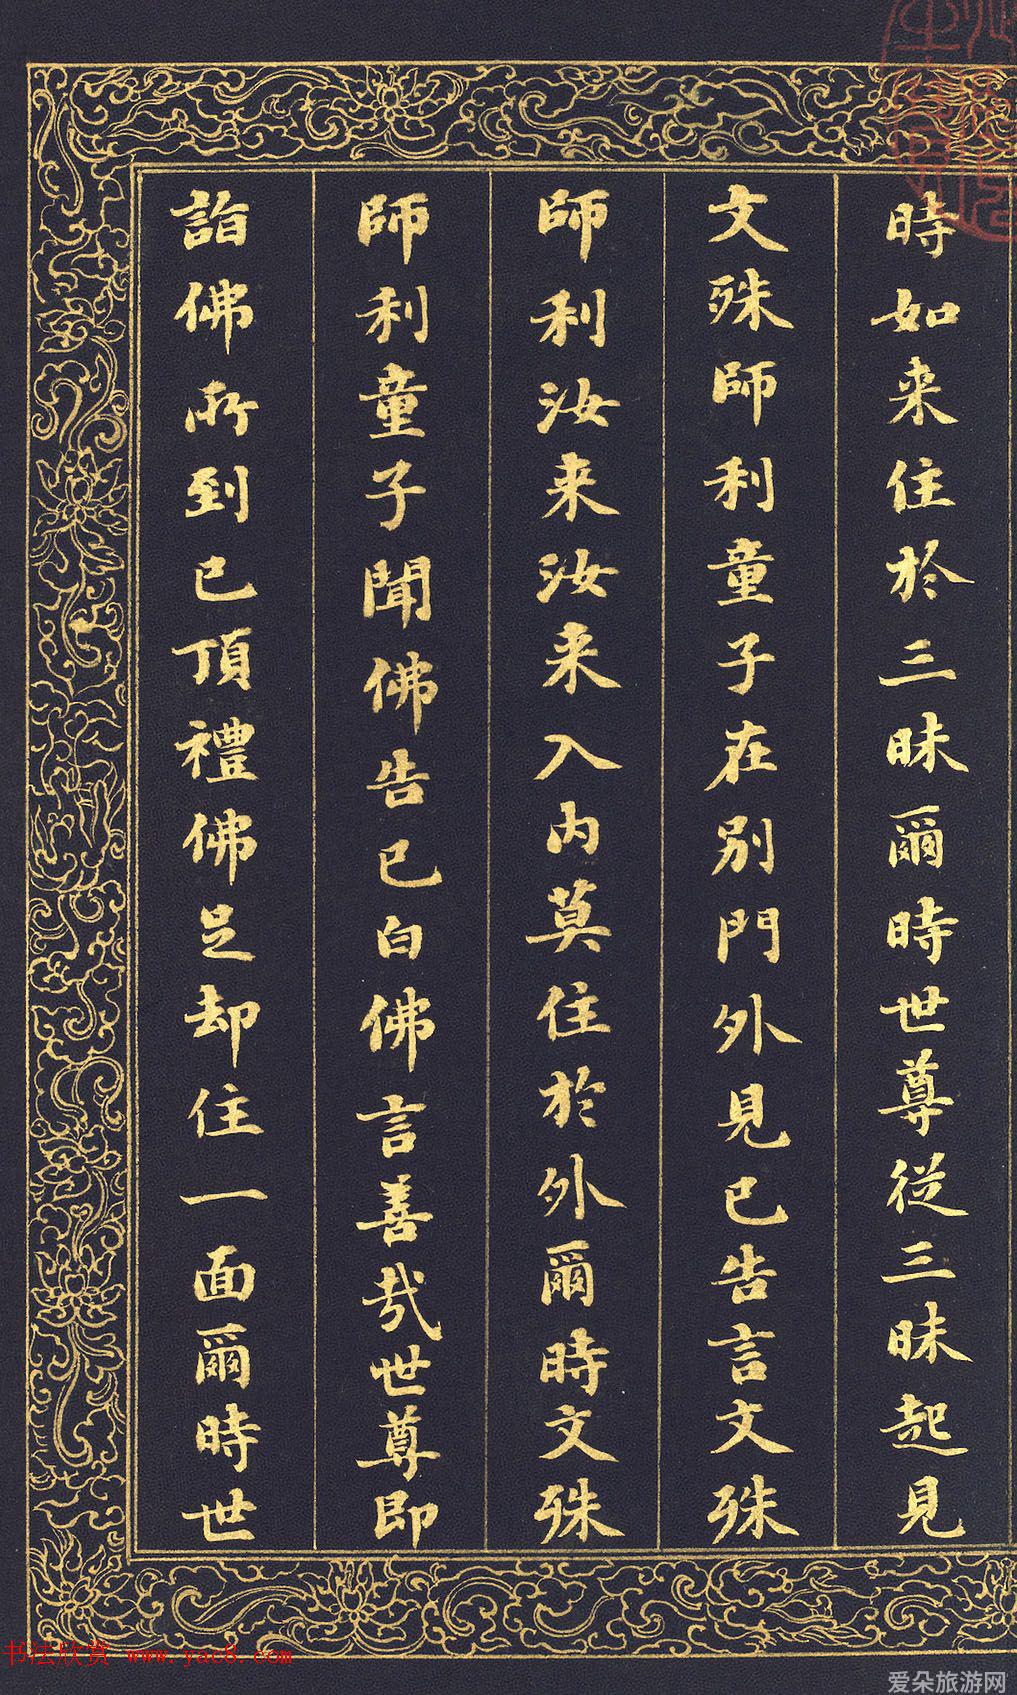 時如来住於三昧爾時世尊從三昧起見
文殊師利童子在別門外見已告言文殊
師利汝来汝来入內莫住於外爾時文殊
師利童子聞佛告已白佛言善哉世尊即
詣佛所到已頂禮佛足却住一面爾時世
书法欣赏 www.yac8.com
爱朵旅游网